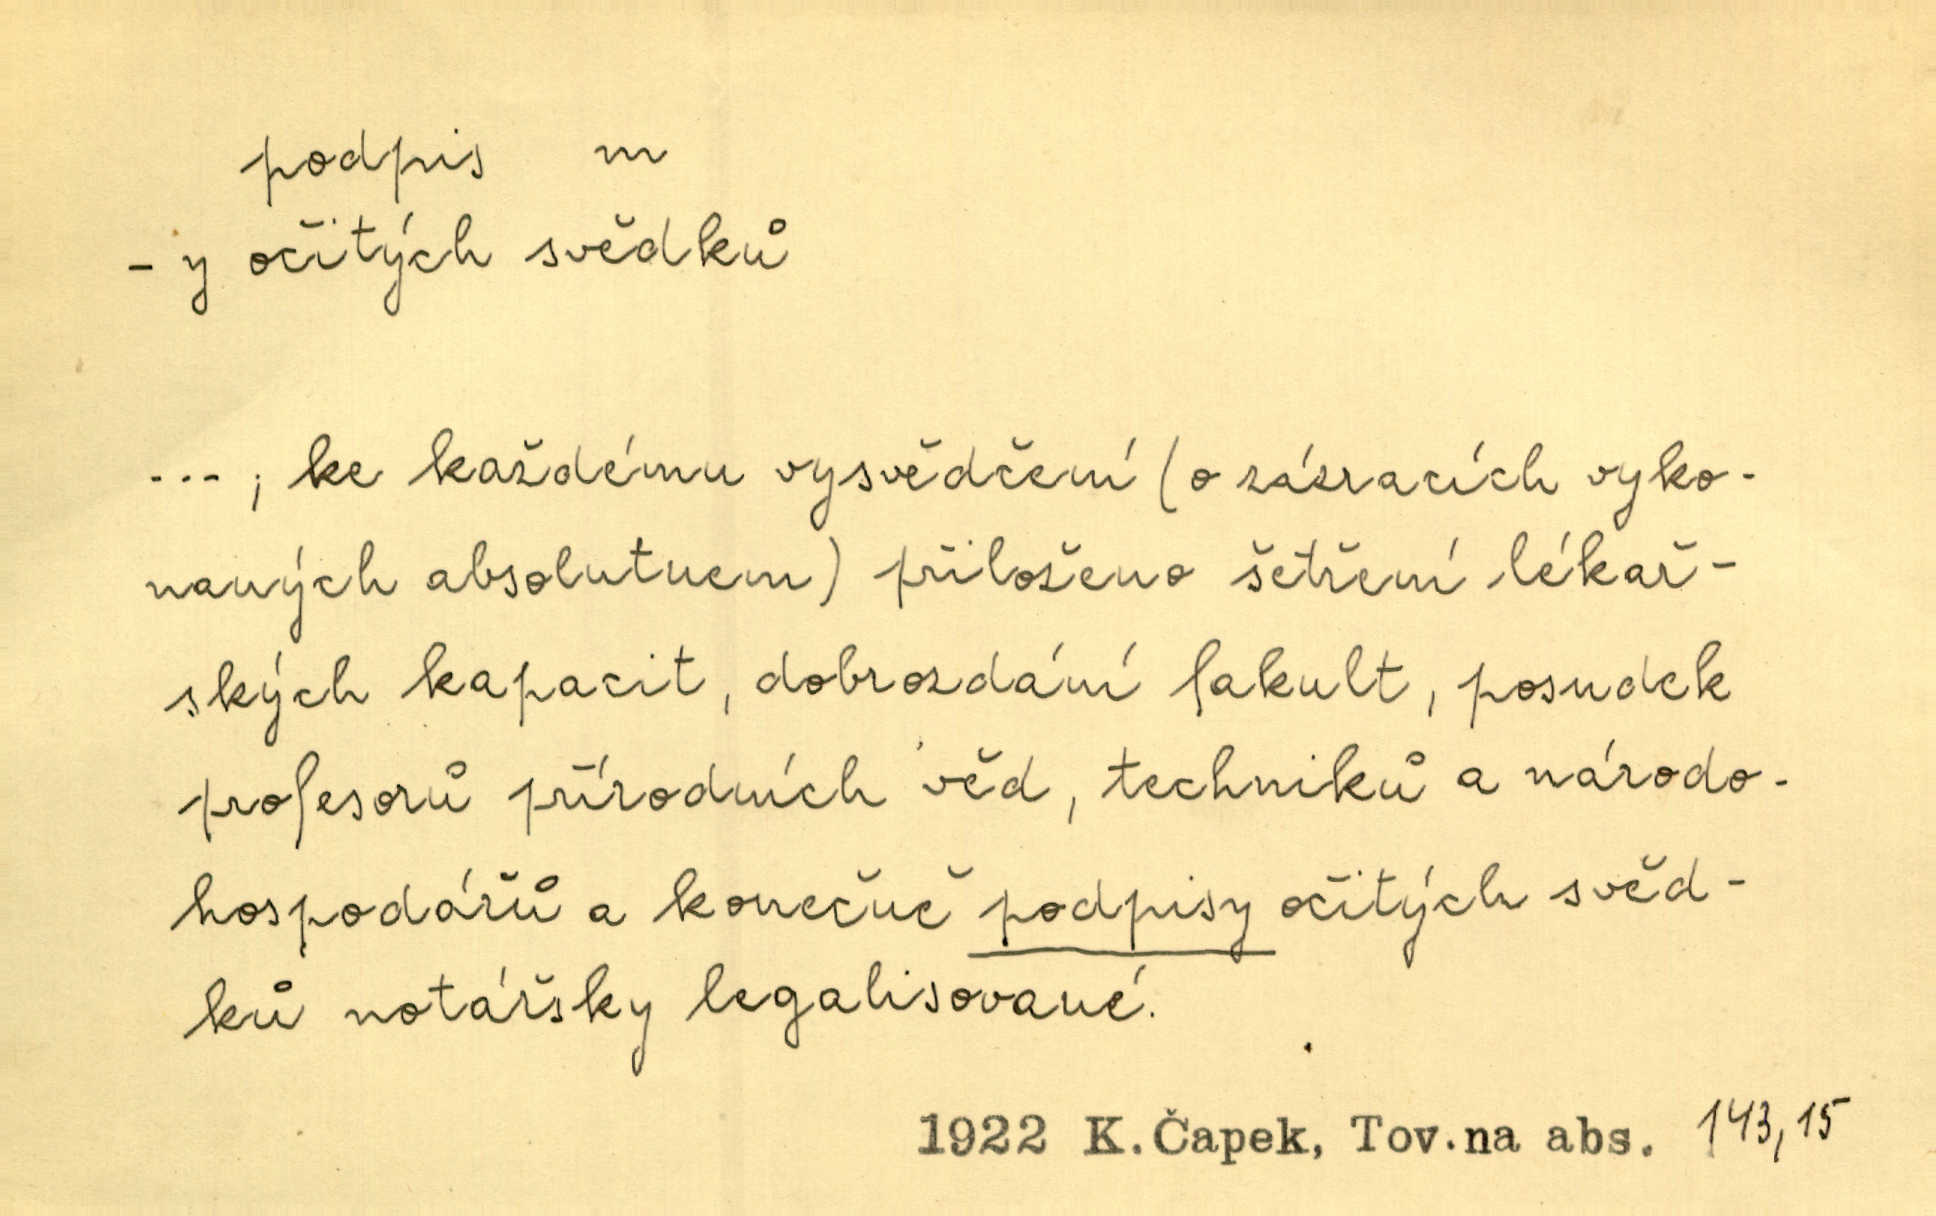 podpis m
- y očitých svědků
---; ke každému vysvědčení (o zázracích vyko-
naných absolutnem) přiloženo šetření lékař-
ských kapacit, dobrozdání fakult, posudek
profesorů přírodních věd, techniků a národo-
hospodářů a konečně podpisy očitých svěd-
ků notářsky legalisované.
1922 K. Čapek, Tov.na abs. 143,15